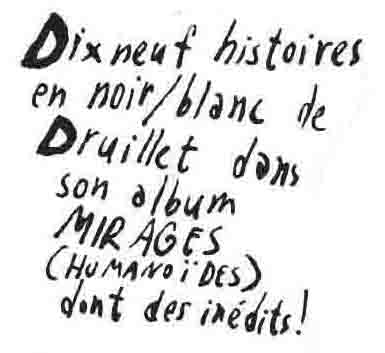 Dix neuf histoires
en noir/blanc de
Druillet dans
son album
MIRAGES
(HUMANOïDES)
dont des inédits!